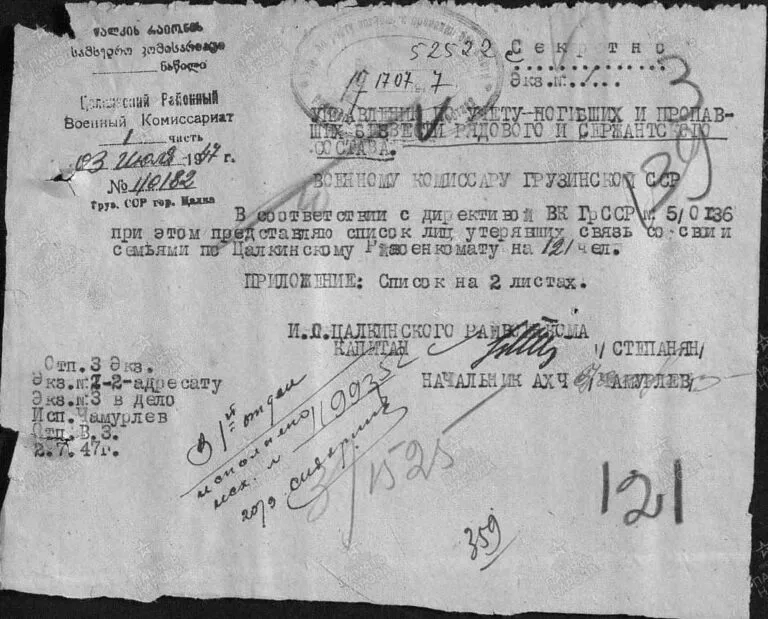 წალკის რაიონის
სამხედრო კომისარიატი
ნაწილი
Цалкинский Районный
Военный Комиссариат
1 часть
03 Июля 1947 г.
№ 40182
Груз. ССР гор. Цалка
52522
Секретно
Экз.№ 1
1707
УПРАВЛЕНИЕ ПО УЧЕТУ ПОГИБШИХ И ПРОПАВ-
ШИХ БЕЗВЕСТИ РЯДОВОГО И СЕРЖАНТСКОГО
СОСТАВА.
139
ВОЕННОМУ КОМИССАРУ ГРУЗИНСКОЙ ССР
В соответствии с директивой ВК ГрССР № 5/0136
при этом представляю список лиц утерявших связь со свии
семьями по Цалкинскому Райвоенкомату на 121 чел.
ПРИЛОЖЕНИЕ: Список на 2 листах.
И.О.ЦАЛКИНСКОГО РАЙВОЕНКОМА
КАПИТАН /СТЕПАНЯН/
НАЧАЛЬНИК АХЧ /ЧАМУРЛЕВ/
Отп.3 Экз.
Экз.№1-2-адресату
Экз.№3 в дело
Исп.Чамурлев
Отп.В.З.
2.7.47г.
В 1й отдел
исполнено
исх. № 1199352
20/9
31525
359
121